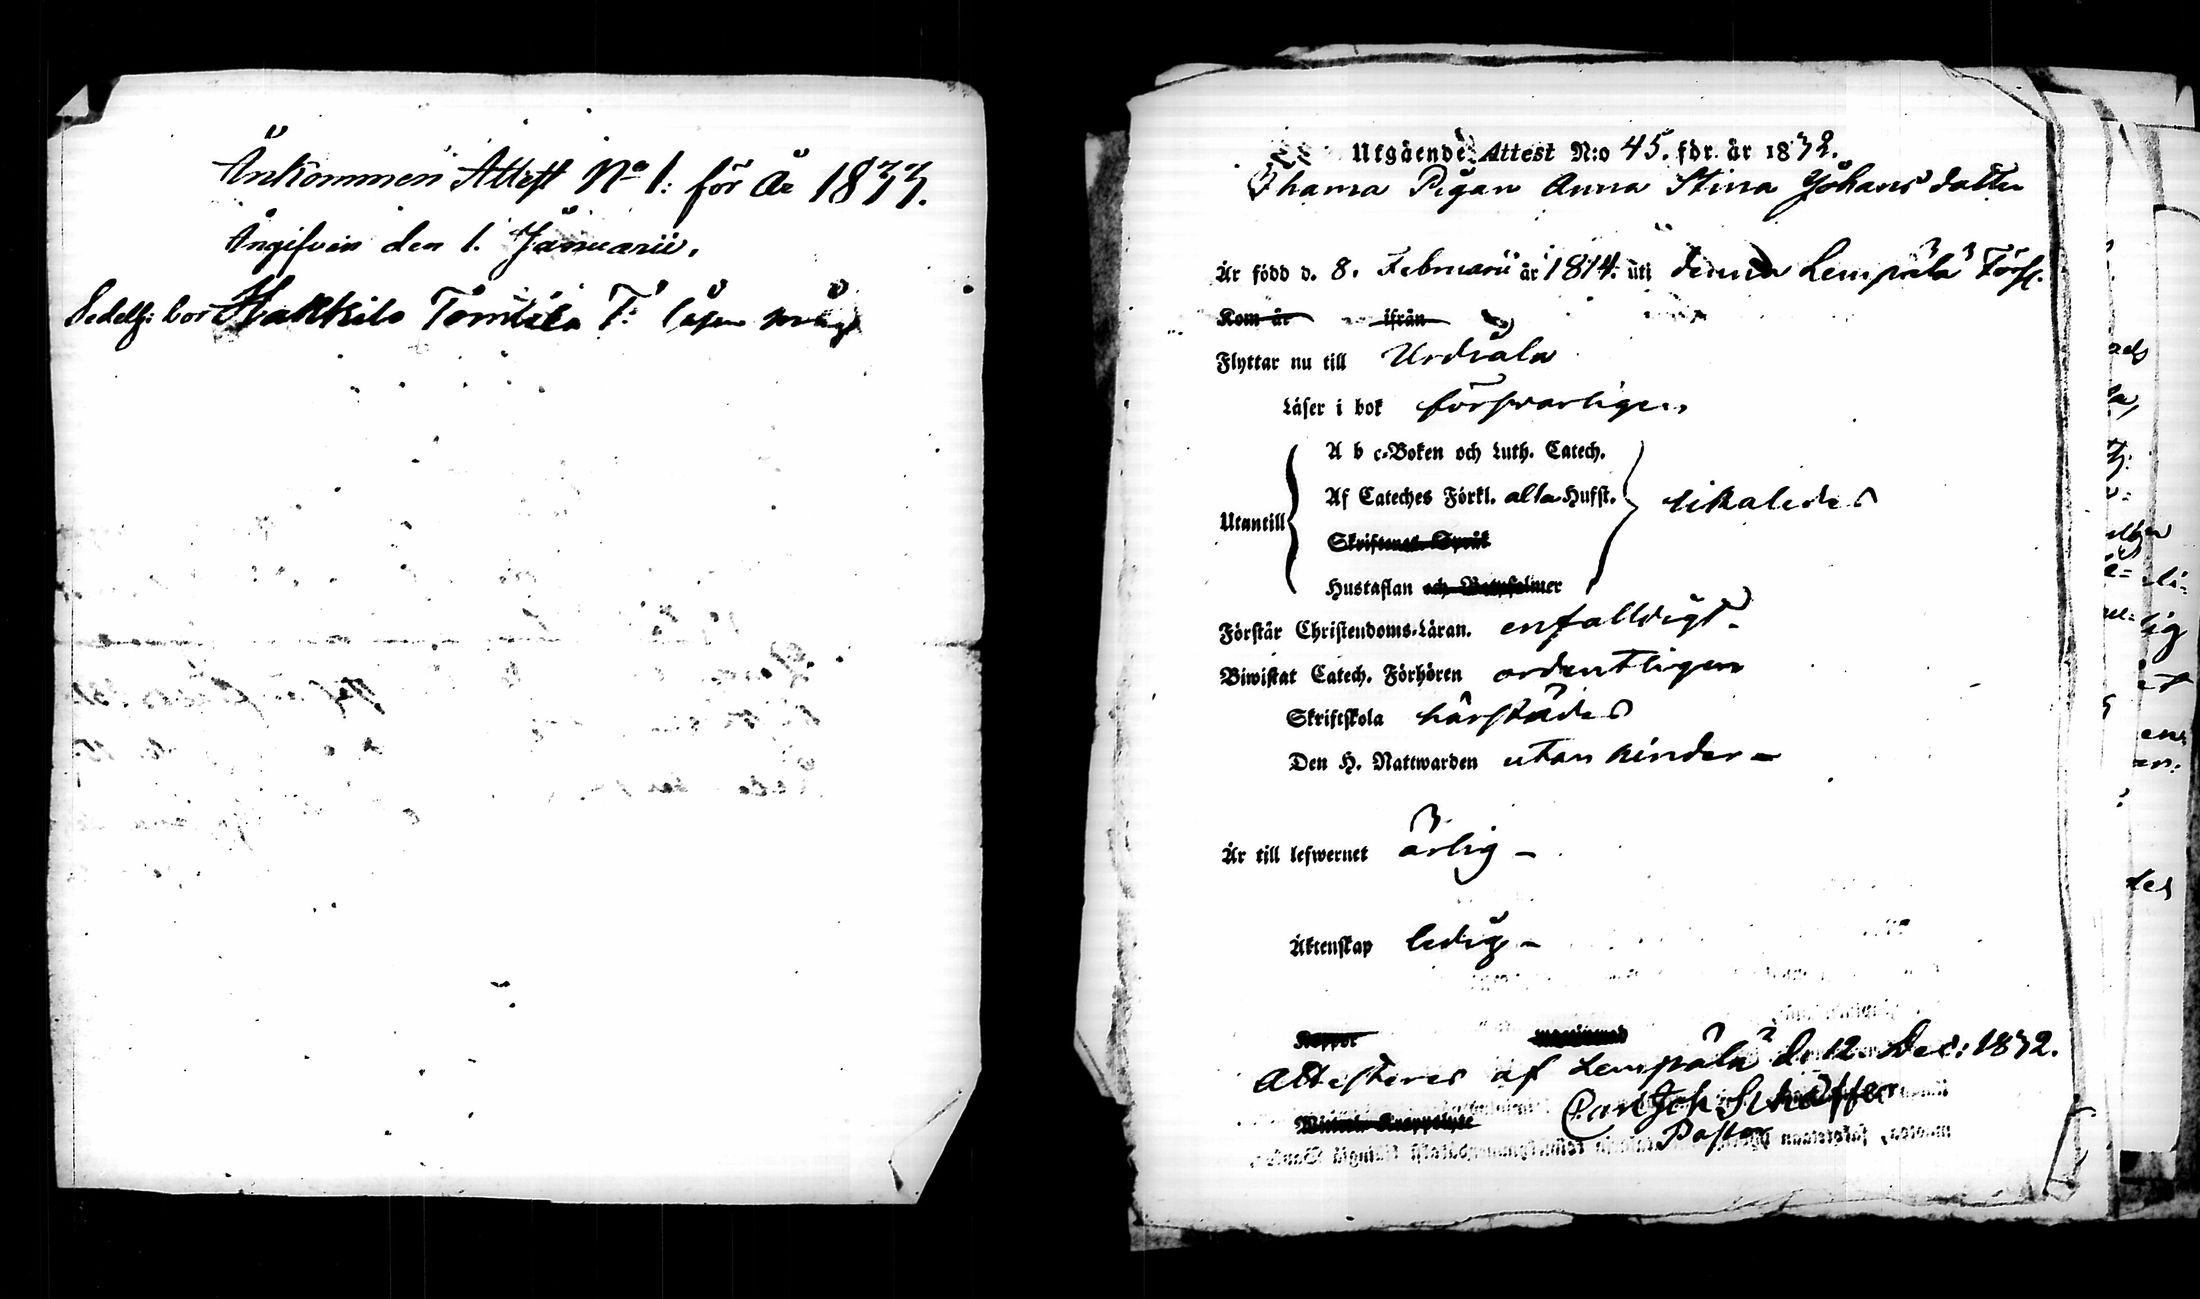 Ankommen Attest No 1: för år 1833.
Angifven den 1. Januarii.
Sedelh: bor Hakkilo Tomula T:
Utgående Attest N:o 45. för år 1832.
Pigan Anna Stina Johansdotter
Är född d. 8. Februarii år 1814. uti denna Lempäla Förs.
Kom år ifrån
Flyttar nu till Urdiala
Läser i bok försvarligen
A b c-Boken och Luth. Catech.
Af Cateches Förkl. alla Hufst.
likaledes
Utantill
Skriftenes Språk
Hustaflan och Botpsalmer
Förstår Christendoms-Läran. enfalldigt
Biwistat Catech. Förhören ordentligen
Skriftskola härstädes
Den H. Nattwarden utan hinder –
Är till lefwernet ärlig –
Äktenskap ledig –
Koppor
Attesteres af Lempäla d. 12. Dec: 1832.
Carl Joh Schäffer
Pastor